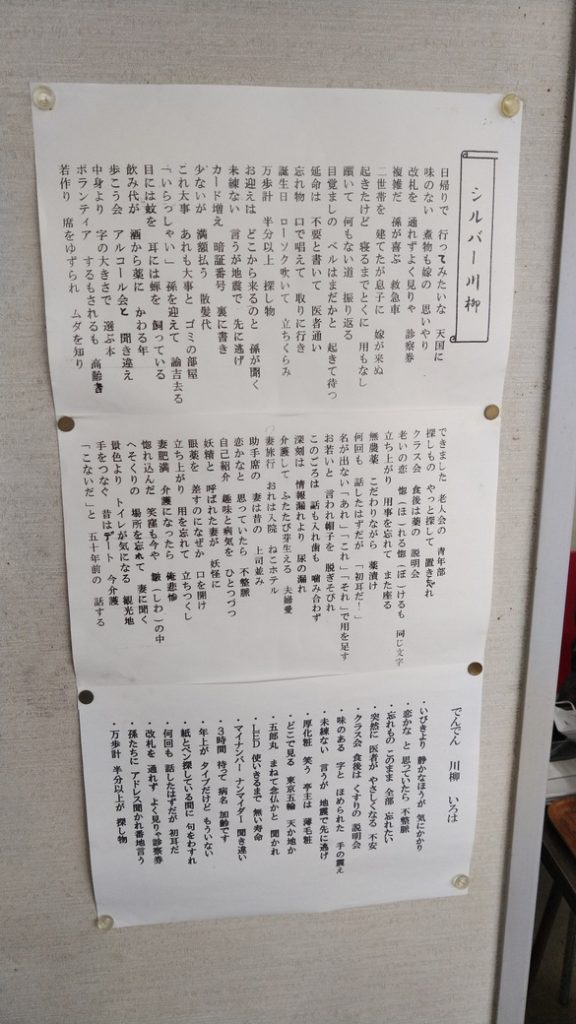 シルバー川柳
日帰りで 行ってみたいな 天国に
味のない 煮物も嫁の 思いやり
改札を 通れずよく見りゃ 診察券
複雑だ 孫が喜ぶ 救急車
二世帯を 建てたが息子に 嫁が来ぬ
起きたけど 寝るまでとくに 用もなし
躓いて 何もない道 振り返る
目覚ましの ベルはまだかと 起きて待つ
延命は 不要と書いて 医者通い
忘れ物 口で唱えて 取りに行き
誕生日 ローソク吹いて 立ちくらみ
万歩計 半分以上 探し物
お迎えは どこから来るのと 孫が聞く
未練ない 言うが地震で 先に逃げ
カード増え 暗証番号 裏に書き
少ないが 満額払う 散髪代
これ大事 あれも大事と ゴミの部屋
「いらっしゃい」 孫を迎えて 諭吉去る
目には蚊を 耳には蝉を 飼っている
飲み代が 酒から薬に かわる年
歩こう会 アルコール会と 聞き違え
中身より 字の大きさで 選ぶ本
ボランティア するもされるも 高齢者
若作り 席をゆずられ ムダを知り
できました 老人会の 青年部
探しもの やっと探して 置き忘れ
クラス会 食後は薬の 説明会
老いの恋 惚(ほ)れる惚(ぼ)けるも 同じ文字
立ち上がり 用事を忘れて また座る
無農薬 こだわりながら 薬漬け
何回も 話したはずだが 「初耳だ!」
名が出ない「あれ」「これ」「それ」で用を足す
お若いと 言われ帽子を 脱ぎそびれ
このごろは 話も入れ歯も 噛み合わず
深刻は 情報漏れより 尿の漏れ
介護して ふたたび芽生える 夫婦愛
妻旅行 おれは入院 ねこホテル
助手席の 妻は昔の 上司並み
恋かなと 思っていたら 不整脈
自己紹介 趣味と病気を ひとつづつ
妖精と 呼ばれた妻が 妖怪に
眼薬を 差すのになぜか 口を開け
立ち上がり 用を忘れて 立ちつくし
妻肥満 介護になったら 俺悲惨
惚れ込んだ 笑窪も今や 皺(しわ)の中
へそくりの 場所を忘れて 妻に聞く
景色より トイレが気になる 観光地
手をつなぐ 昔はデート 今介護
「こないだ」と 五十年前の 話する
でんでん 川柳 いろは
・いびきより 静かなほうが 気にかかり
・恋かな と 思っていたら 不整脈
・忘れもの このまま 全部 忘れたい
・突然に 医者が やさしくなる 不安
・クラス会 食後は くすりの 説明会
・味のある 字と ほめられた 手の震え
・未練ない 言うが 地震で先に逃げ
・厚化粧 笑う 亭主は 薄毛粧
・どこで見る 東京五輪 天か地か
・五郎丸 まねて念仏かと 聞かれ
・LED 使いきるまで 無い寿命
・マイナンバー ナンマイダー 聞き違い
・3時間 待って 病名 加齢です
・年上が タイプだけど もういない
・紙とペン探している間に 句をわすれ
・何回も 話したはずだが 初耳だ
・改札を 通れず よく見りゃ診察券
・孫たちに アドレス聞かれ番地言う
・万歩計 半分以上が 探し物